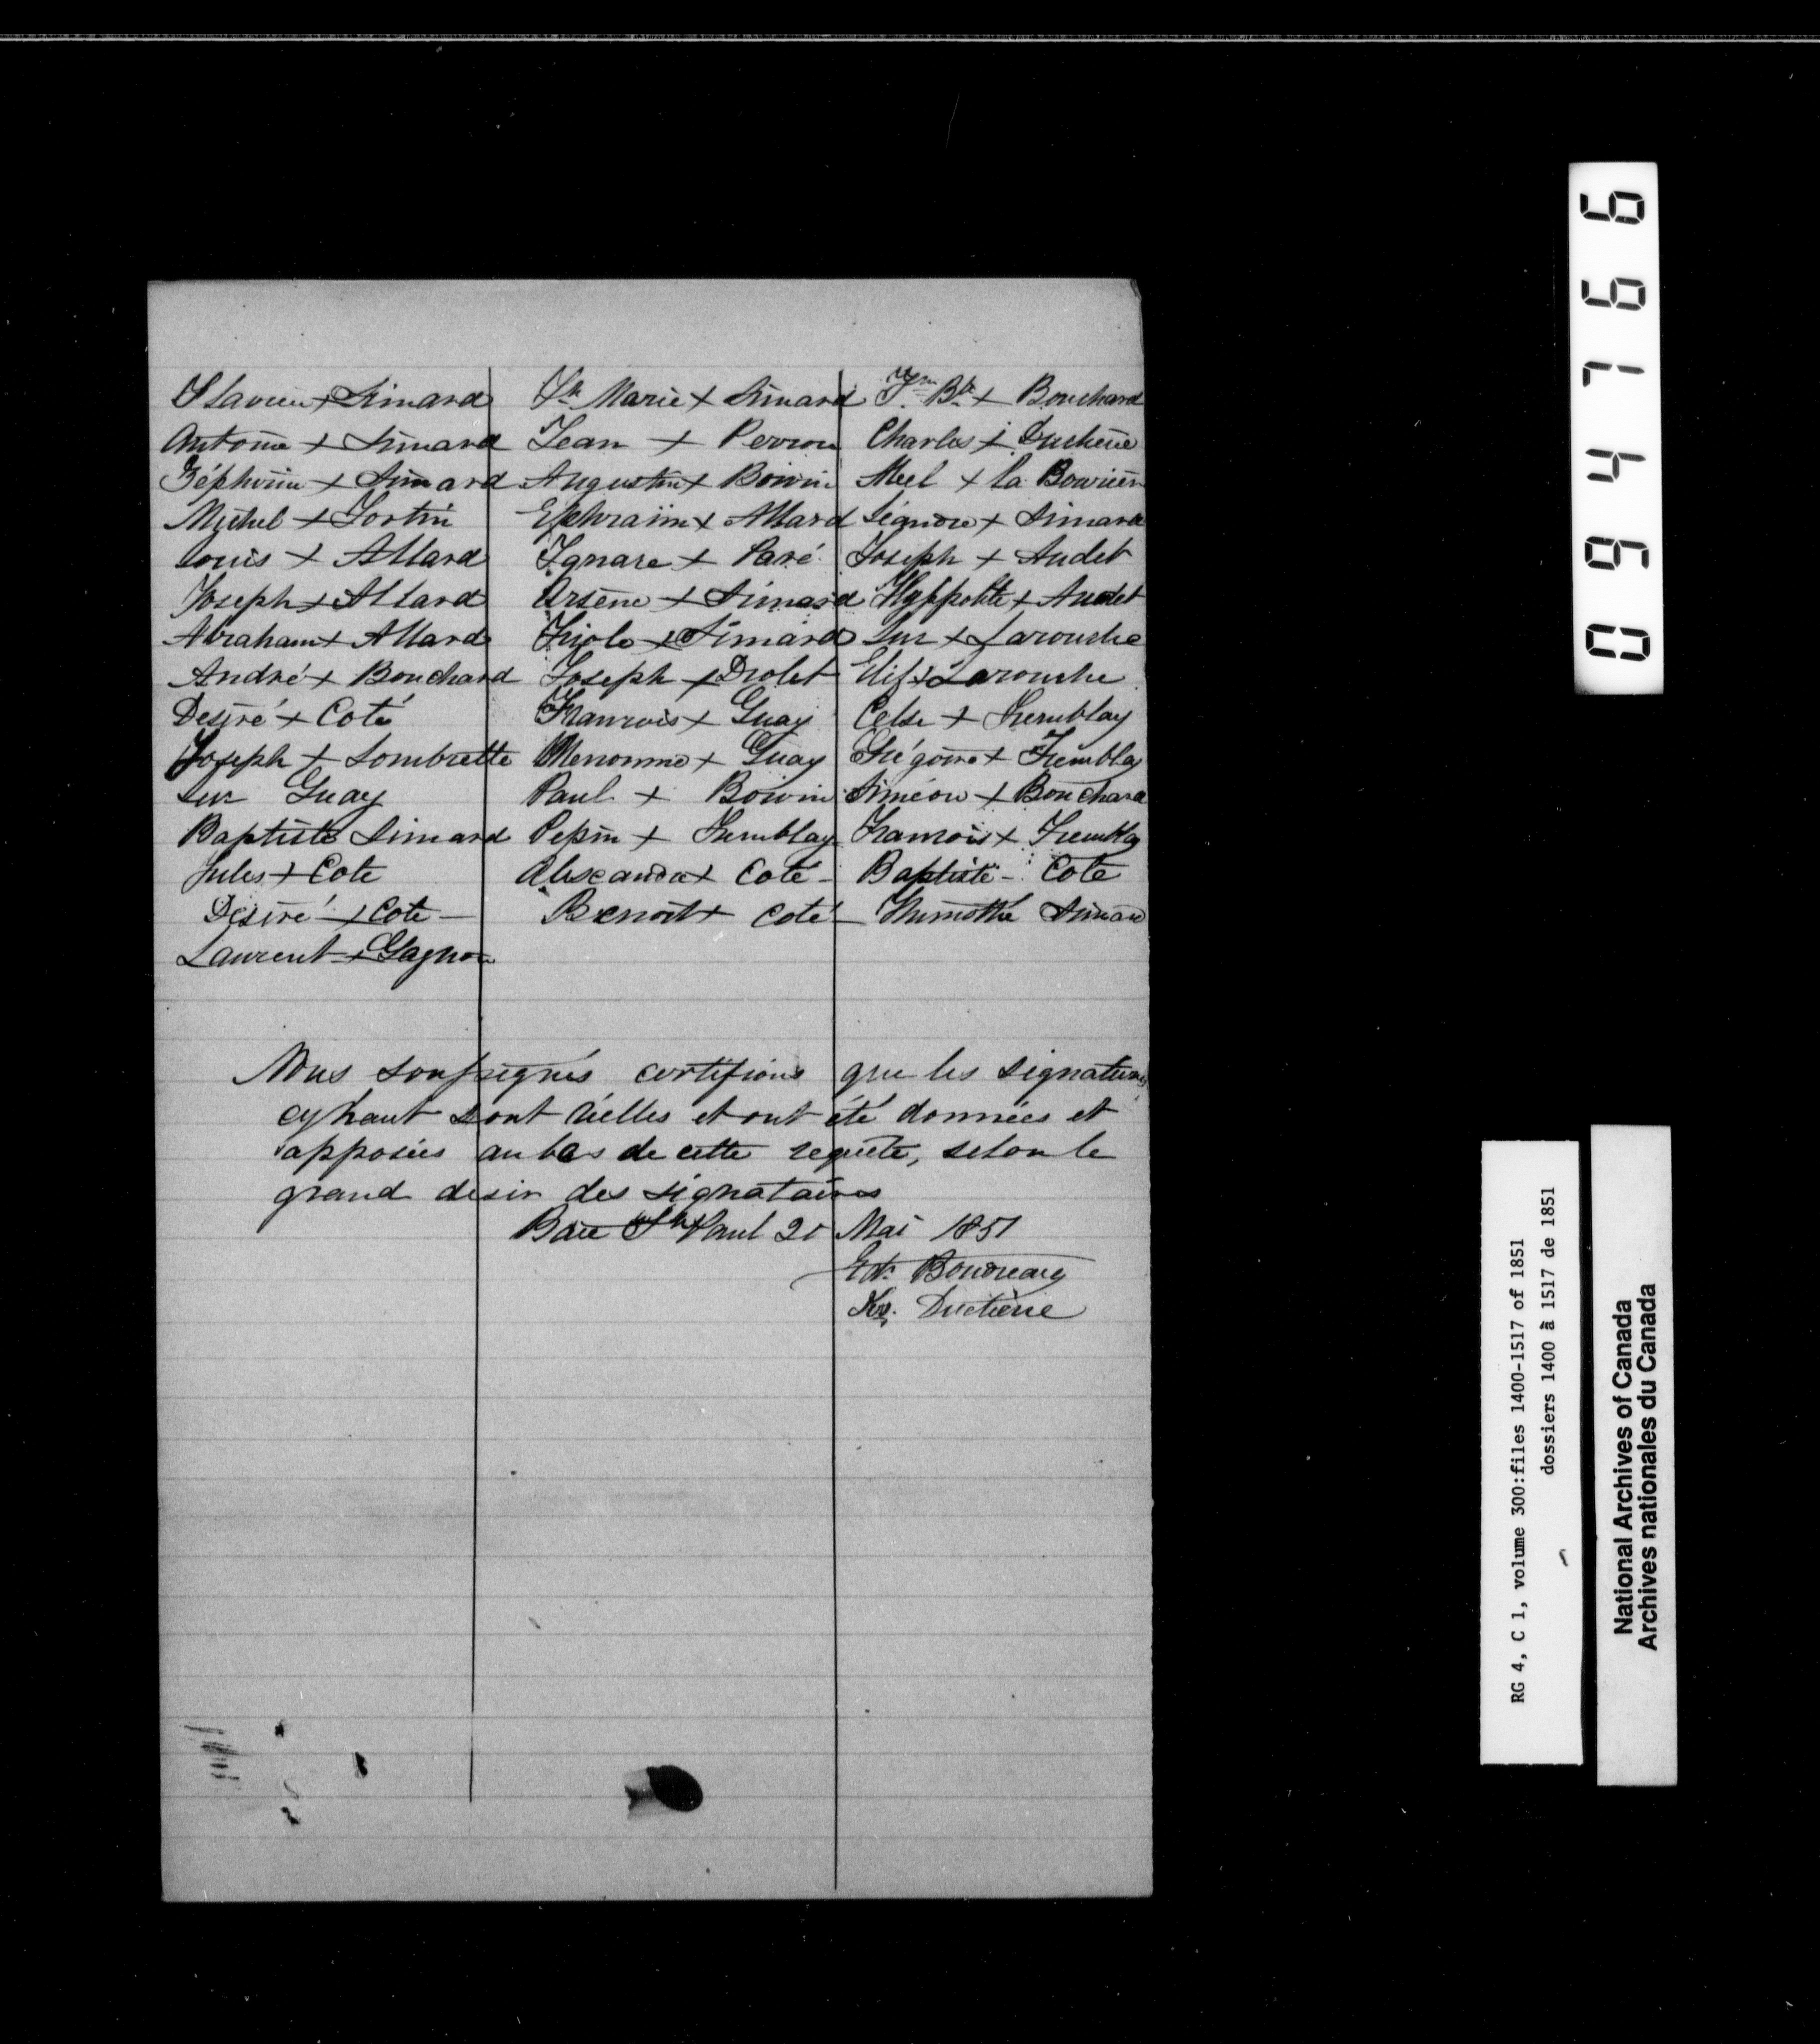 Flavien + Simard
Antoine + Simard
Zéphirin + Simard
Michel + Fortin
Louis + Allard
Joseph + Allard
Abraham + Allard
André + Bouchard
Desiré + Coté
Joseph + Lombrette
Luc Guay
Baptiste Simard
Jules + Cote
Desiré + Cote -
Laurent + Gagnon
Jh Marie + Simard
Jean + Perron
Augustin + Boivin
Ephraïm + Allard
Ignace + Paré
Arsène + Simard
+ Simard
Joseph + Drolet
Francois + Guay
+ Guay
Paul + Boivin
Pepin + Tremblay
Alexandre + Coté -
Benoit + Coté -
Jn Bte + Bouchard
Charles + Duchène
Abel + la Bouriere
Léandre + Simard
Joseph + Audet
Hyppolite + Audet
Luc + Larouche
+ Larouche
Celse + Tremblay
Grégoire + Tremblay
Siméon + Bouchard
Francois + Trembla
Baptiste - Cote
Thimothé Simard
Nous soussignés certifions que les signatures
cy haut sont réelles et ont été données et
apposées au bas de cette requête, selon le
grand desir des signataires
Baie St Paul 20 Mai 1851
Ed. Boudreau
Duchène
094766
RG 4, C 1, volume 300:files 1400-1517 of 1851
dossiers 1400 à 1517 de 1851
National Archives of Canada
Archives nationales du Canada